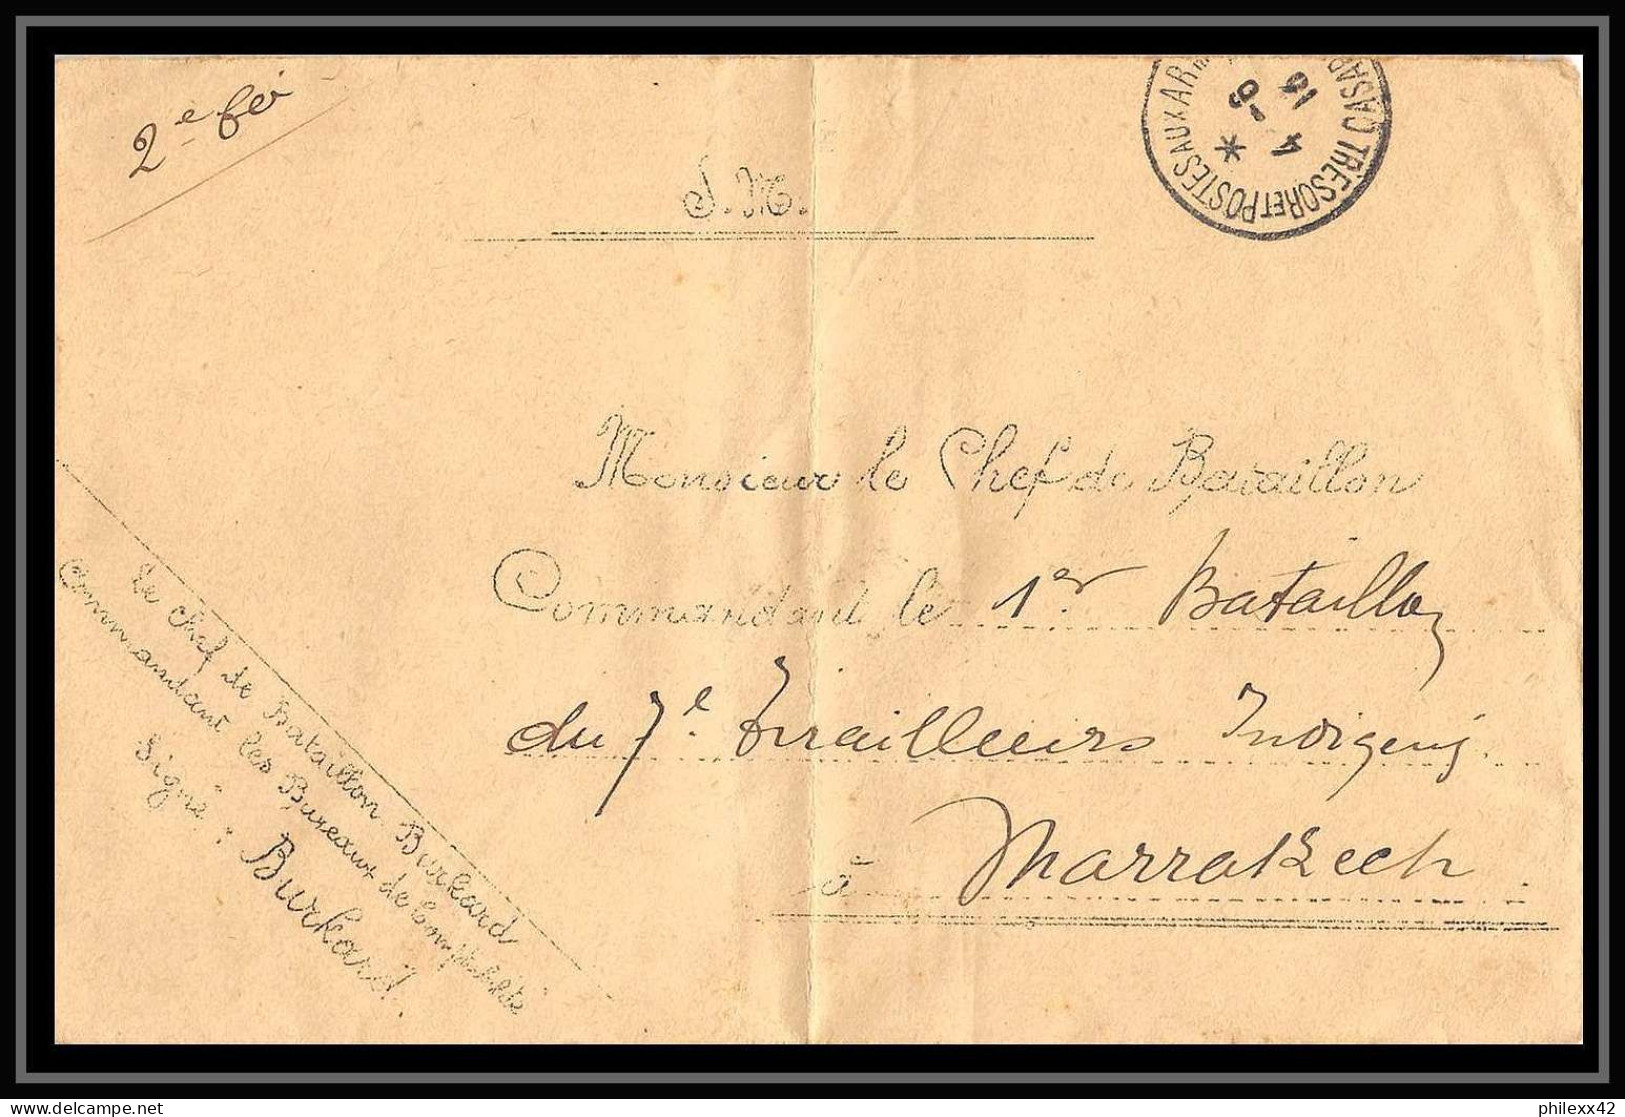 2e
S.M.
TRESOR ET POSTES AUX AR
*
4
-9
15
Monsieur le Chef de Bataillon
Commandant le 1er Bataillon
du 7e Tirailleurs Indigens
à Marrakech
Le Chef de Bataillon Burkard
Commandant les Bureaux de Comptabilité
Signé : Burkard.
philexx42